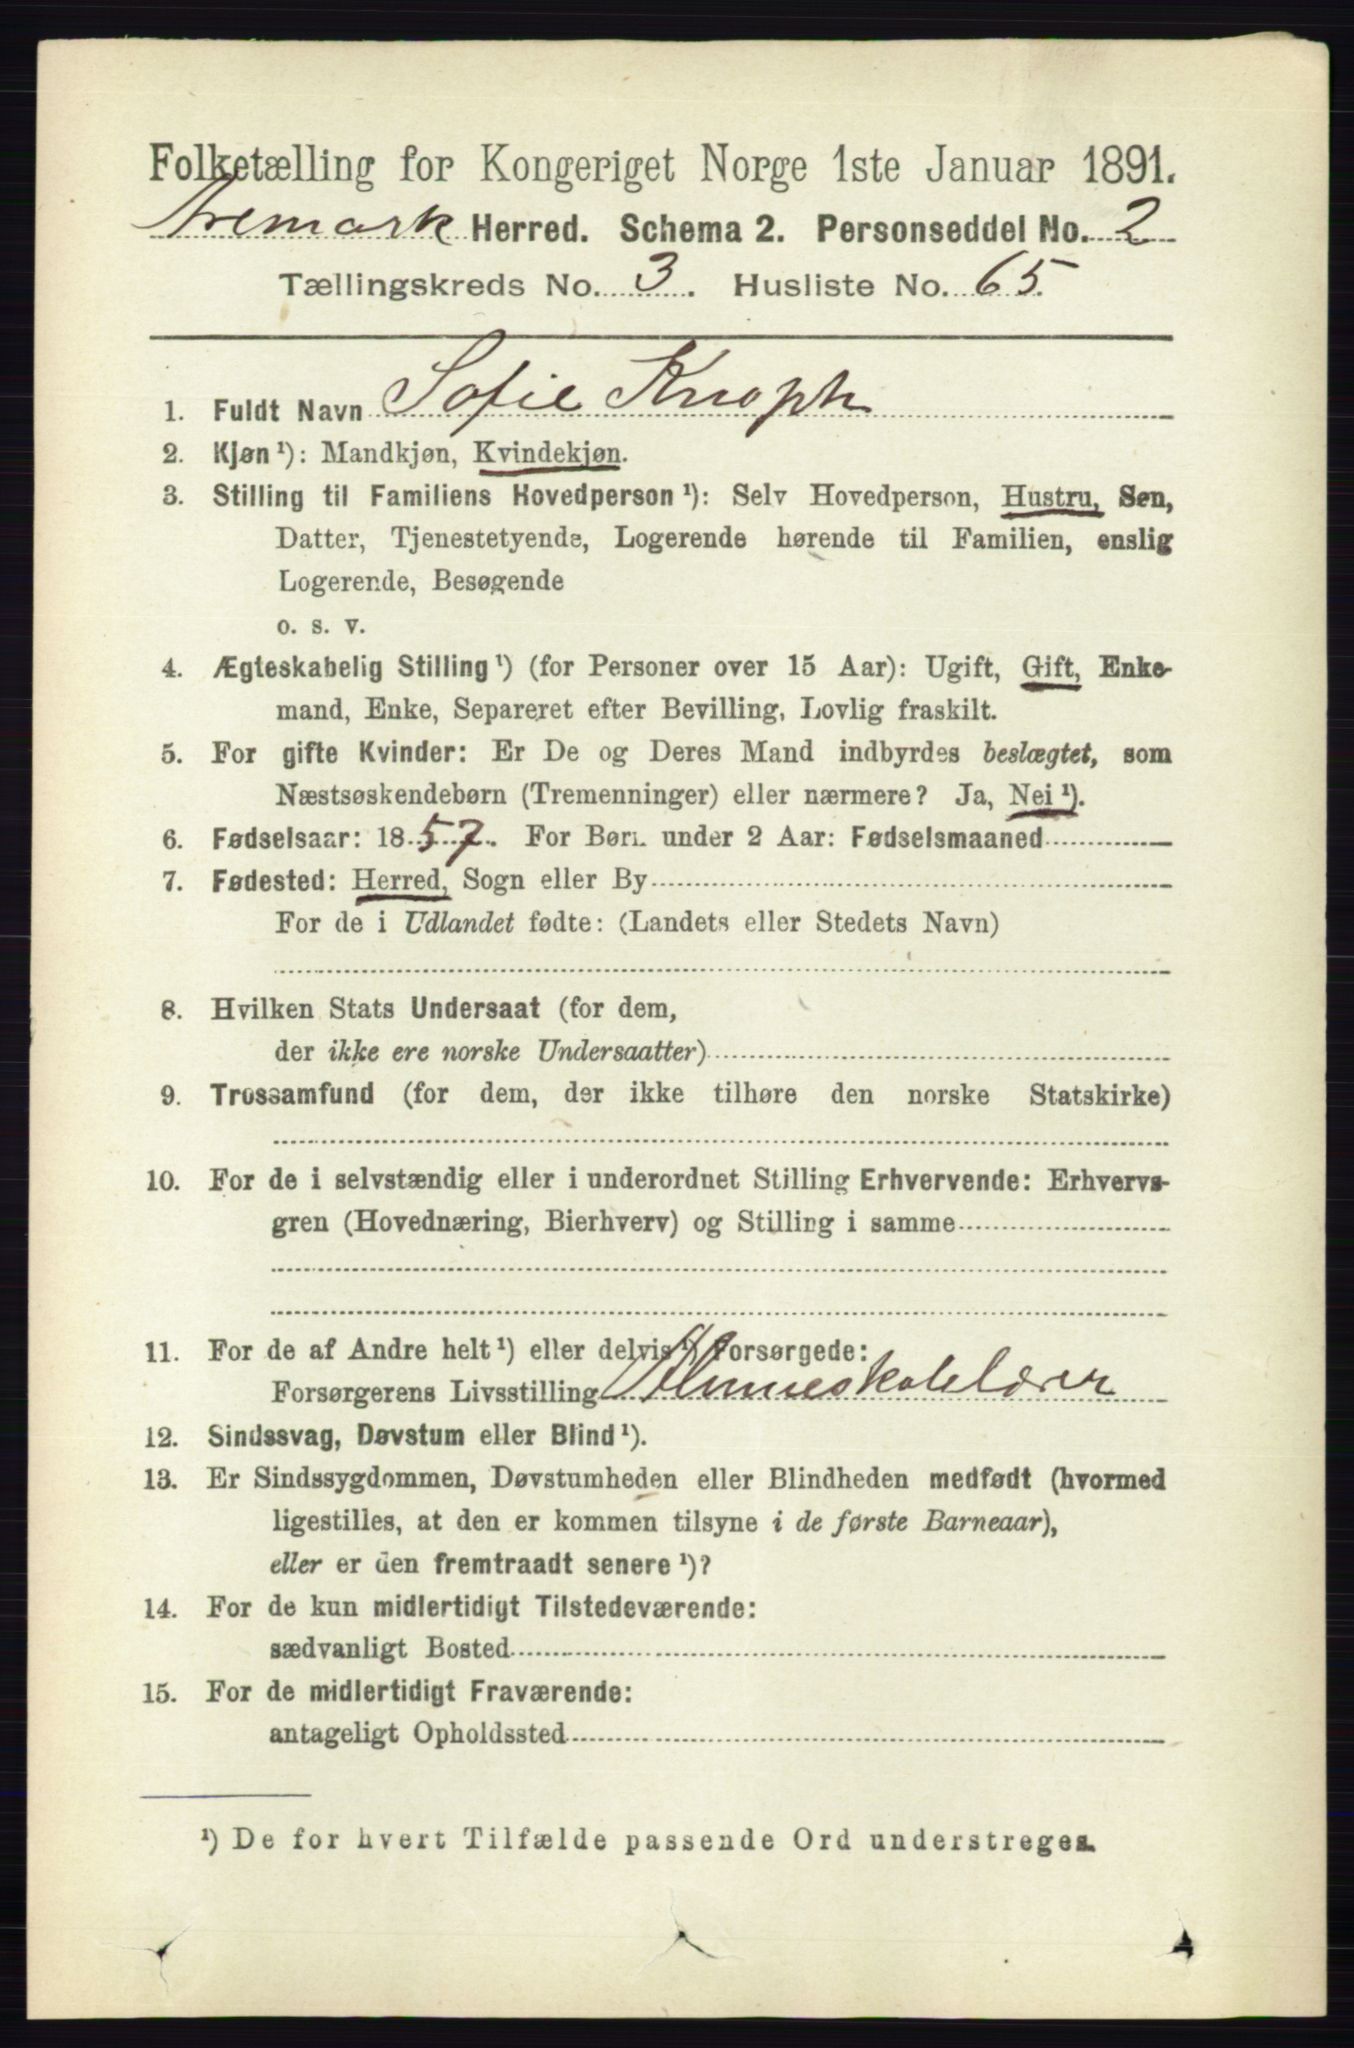 Folketælling for Kongeriget Norge 1ste Januar 1891.
Aremark Herred. Schema 2. Personseddel No. 2
Tællingskreds No. 3. Husliste No. 65.
1. Fuldt Navn Sofie Knoph
2. Kjøn¹): Mandkjøn, Kvindekjøn.
3. Stilling til Familiens Hovedperson¹): Selv Hovedperson, Hustru, Søn,
Datter, Tjenestetyende, Logerende hørende til Familien, enslig
Logerende, Besøgende
o. s. v.
4. Ægteskabelig Stilling¹) (for Personer over 15 Aar): Ugift, Gift, Enke-
mand, Enke, Separeret efter Bevilling, Lovlig fraskilt.
5. For gifte Kvinder: Er De og Deres Mand indbyrdes beslægtet, som
Næstsøskendebørn (Tremenninger) eller nærmere? Ja, Nei¹).
6. Fødselsaar: 1857. For Børn under 2 Aar: Fødselsmaaned
7. Fødested: Herred, Sogn eller By
For de i Udlandet fødte: (Landets eller Stedets Navn)
8. Hvilken Stats Undersaat (for dem,
der ikke ere norske Undersaatter)
9. Trossamfund (for dem, der ikke tilhøre den norske Statskirke)
10. For de i selvstændig eller i underordnet Stilling Erhvervende: Erhvervs-
gren (Hovednæring, Bierhverv) og Stilling i samme
11. For de af Andre helt¹) eller delvis¹) forsørgede:
Forsørgerens Livsstilling Almueskolelærer
12. Sindssvag, Døvstum eller Blind¹).
13. Er Sindssygdommen, Døvstumheden eller Blindheden medfødt (hvormed
ligestilles, at den er kommen tilsyne i de første Barneaar),
eller er den fremtraadt senere¹)?
14. For de kun midlertidigt Tilstedeværende:
sædvanligt Bosted
15. For de midlertidigt Fraværende:
antageligt Opholdssted
¹) De for hvert Tilfælde passende Ord understreges.